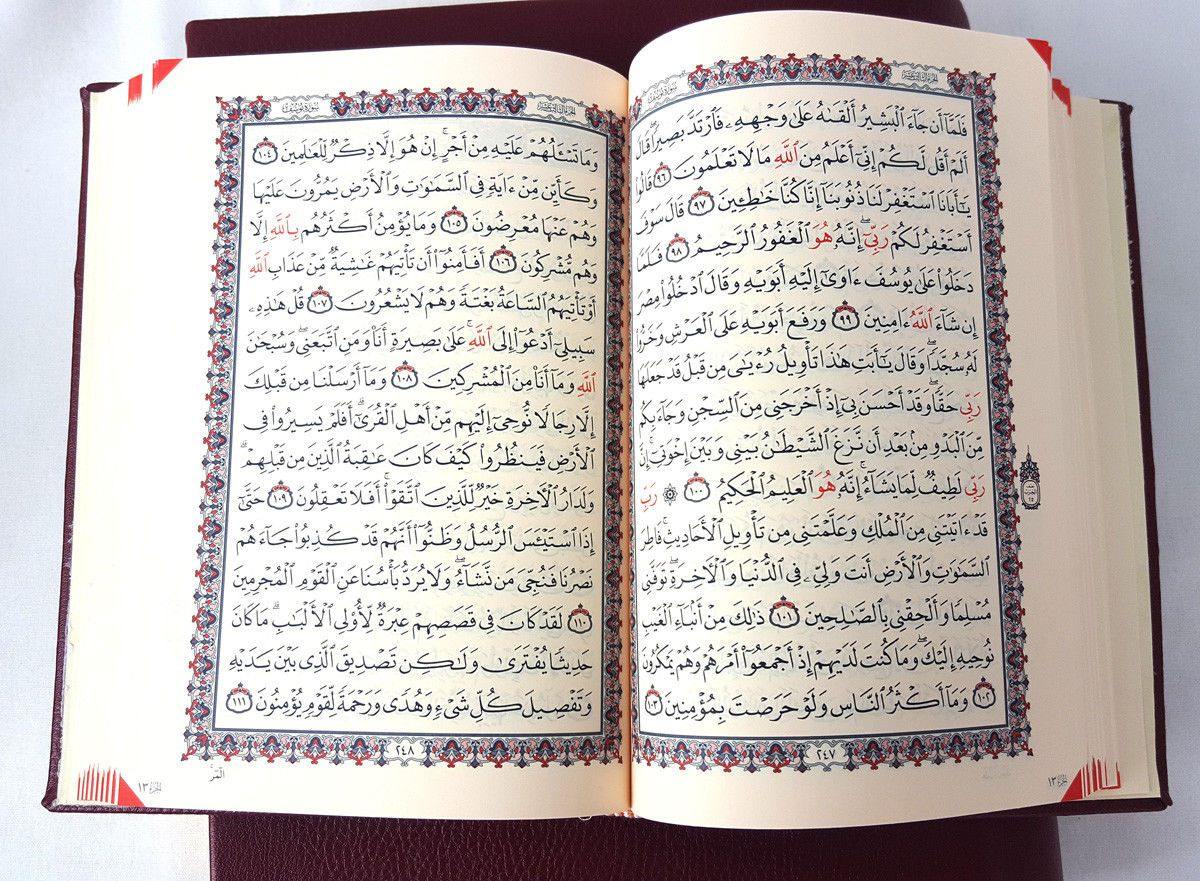 سورة يوسف
الجزء الثالث عشر
فَلَمَّآ أَن جَآءَ ٱلْبَشِيرُ أَلْقَىٰهُ عَلَىٰ وَجْهِهِۦ فَٱرْتَدَّ بَصِيرًا ۖ قَالَ
أَلَمْ أَقُل لَّكُمْ إِنِّىٓ أَعْلَمُ مِنَ ٱللَّهِ مَا لَا تَعْلَمُونَ ٩٦ قَالُوا۟
يَـٰٓأَبَانَا ٱسْتَغْفِرْ لَنَا ذُنُوبَنَآ إِنَّا كُنَّا خَـٰطِـِٔينَ ٩٧ قَالَ سَوْفَ
أَسْتَغْفِرُ لَكُمْ رَبِّىٓ ۖ إِنَّهُۥ هُوَ ٱلْغَفُورُ ٱلرَّحِيمُ ٩٨ فَلَمَّا
دَخَلُوا۟ عَلَىٰ يُوسُفَ ءَاوَىٰٓ إِلَيْهِ أَبَوَيْهِ وَقَالَ ٱدْخُلُوا۟ مِصْرَ
إِن شَآءَ ٱللَّهُ ءَامِنِينَ ٩٩ وَرَفَعَ أَبَوَيْهِ عَلَى ٱلْعَرْشِ وَخَرُّوا۟
لَهُۥ سُجَّدًا ۖ وَقَالَ يَـٰٓأَبَتِ هَـٰذَا تَأْوِيلُ رُءْيَـٰىَ مِن قَبْلُ قَدْ جَعَلَهَا
رَبِّى حَقًّا ۖ وَقَدْ أَحْسَنَ بِىٓ إِذْ أَخْرَجَنِى مِنَ ٱلسِّجْنِ وَجَآءَ بِكُم
مِّنَ ٱلْبَدْوِ مِنۢ بَعْدِ أَن نَّزَغَ ٱلشَّيْطَـٰنُ بَيْنِى وَبَيْنَ إِخْوَتِىٓ ۚ إِنَّ
رَبِّى لَطِيفٌ لِّمَا يَشَآءُ ۚ إِنَّهُۥ هُوَ ٱلْعَلِيمُ ٱلْحَكِيمُ ١٠٠ ۞ رَبِّ
قَدْ ءَاتَيْتَنِى مِنَ ٱلْمُلْكِ وَعَلَّمْتَنِى مِن تَأْوِيلِ ٱلْأَحَادِيثِ ۚ فَاطِرَ
ٱلسَّمَـٰوَٰتِ وَٱلْأَرْضِ أَنتَ وَلِىِّۦ فِى ٱلدُّنْيَا وَٱلْـَٔاخِرَةِ ۖ تَوَفَّنِى
مُسْلِمًا وَأَلْحِقْنِى بِٱلصَّـٰلِحِينَ ١٠١ ذَٰلِكَ مِنْ أَنۢبَآءِ ٱلْغَيْبِ
نُوحِيهِ إِلَيْكَ ۖ وَمَا كُنتَ لَدَيْهِمْ إِذْ أَجْمَعُوٓا۟ أَمْرَهُمْ وَهُمْ يَمْكُرُونَ
١٠٢ وَمَآ أَكْثَرُ ٱلنَّاسِ وَلَوْ حَرَصْتَ بِمُؤْمِنِينَ ١٠٣
٢٤٧
الجزء ١٣
سورة يوسف
الجزء الثالث عشر
وَمَا تَسْـَٔلُهُمْ عَلَيْهِ مِنْ أَجْرٍ ۚ إِنْ هُوَ إِلَّا ذِكْرٌ لِّلْعَـٰلَمِينَ ١٠٤
وَكَأَيِّن مِّنْ ءَايَةٍ فِى ٱلسَّمَـٰوَٰتِ وَٱلْأَرْضِ يَمُرُّونَ عَلَيْهَا
وَهُمْ عَنْهَا مُعْرِضُونَ ١٠٥ وَمَا يُؤْمِنُ أَكْثَرُهُم بِٱللَّهِ إِلَّا
وَهُم مُّشْرِكُونَ ١٠٦ أَفَأَمِنُوٓا۟ أَن تَأْتِيَهُمْ غَـٰشِيَةٌ مِّنْ عَذَابِ ٱللَّهِ
أَوْ تَأْتِيَهُمُ ٱلسَّاعَةُ بَغْتَةً وَهُمْ لَا يَشْعُرُونَ ١٠٧ قُلْ هَـٰذِهِۦ
سَبِيلِىٓ أَدْعُوٓا۟ إِلَى ٱللَّهِ ۚ عَلَىٰ بَصِيرَةٍ أَنَا۠ وَمَنِ ٱتَّبَعَنِى ۖ وَسُبْحَـٰنَ
ٱللَّهِ وَمَآ أَنَا۠ مِنَ ٱلْمُشْرِكِينَ ١٠٨ وَمَآ أَرْسَلْنَا مِن قَبْلِكَ
إِلَّا رِجَالًا نُّوحِىٓ إِلَيْهِم مِّنْ أَهْلِ ٱلْقُرَىٰٓ ۗ أَفَلَمْ يَسِيرُوا۟ فِى
ٱلْأَرْضِ فَيَنظُرُوا۟ كَيْفَ كَانَ عَـٰقِبَةُ ٱلَّذِينَ مِن قَبْلِهِمْ ۗ
وَلَدَارُ ٱلْـَٔاخِرَةِ خَيْرٌ لِّلَّذِينَ ٱتَّقَوْا۟ ۗ أَفَلَا تَعْقِلُونَ ١٠٩ حَتَّىٰٓ
إِذَا ٱسْتَيْـَٔسَ ٱلرُّسُلُ وَظَنُّوٓا۟ أَنَّهُمْ قَدْ كُذِبُوا۟ جَآءَهُمْ
نَصْرُنَا فَنُجِّىَ مَن نَّشَآءُ ۖ وَلَا يُرَدُّ بَأْسُنَا عَنِ ٱلْقَوْمِ ٱلْمُجْرِمِينَ
١١٠ لَقَدْ كَانَ فِى قَصَصِهِمْ عِبْرَةٌ لِّأُو۟لِى ٱلْأَلْبَـٰبِ ۗ مَا كَانَ
حَدِيثًا يُفْتَرَىٰ وَلَـٰكِن تَصْدِيقَ ٱلَّذِى بَيْنَ يَدَيْهِ
وَتَفْصِيلَ كُلِّ شَىْءٍ وَهُدًى وَرَحْمَةً لِّقَوْمٍ يُؤْمِنُونَ ١١١
٢٤٨
الٓمٓر
الجزء ١٣